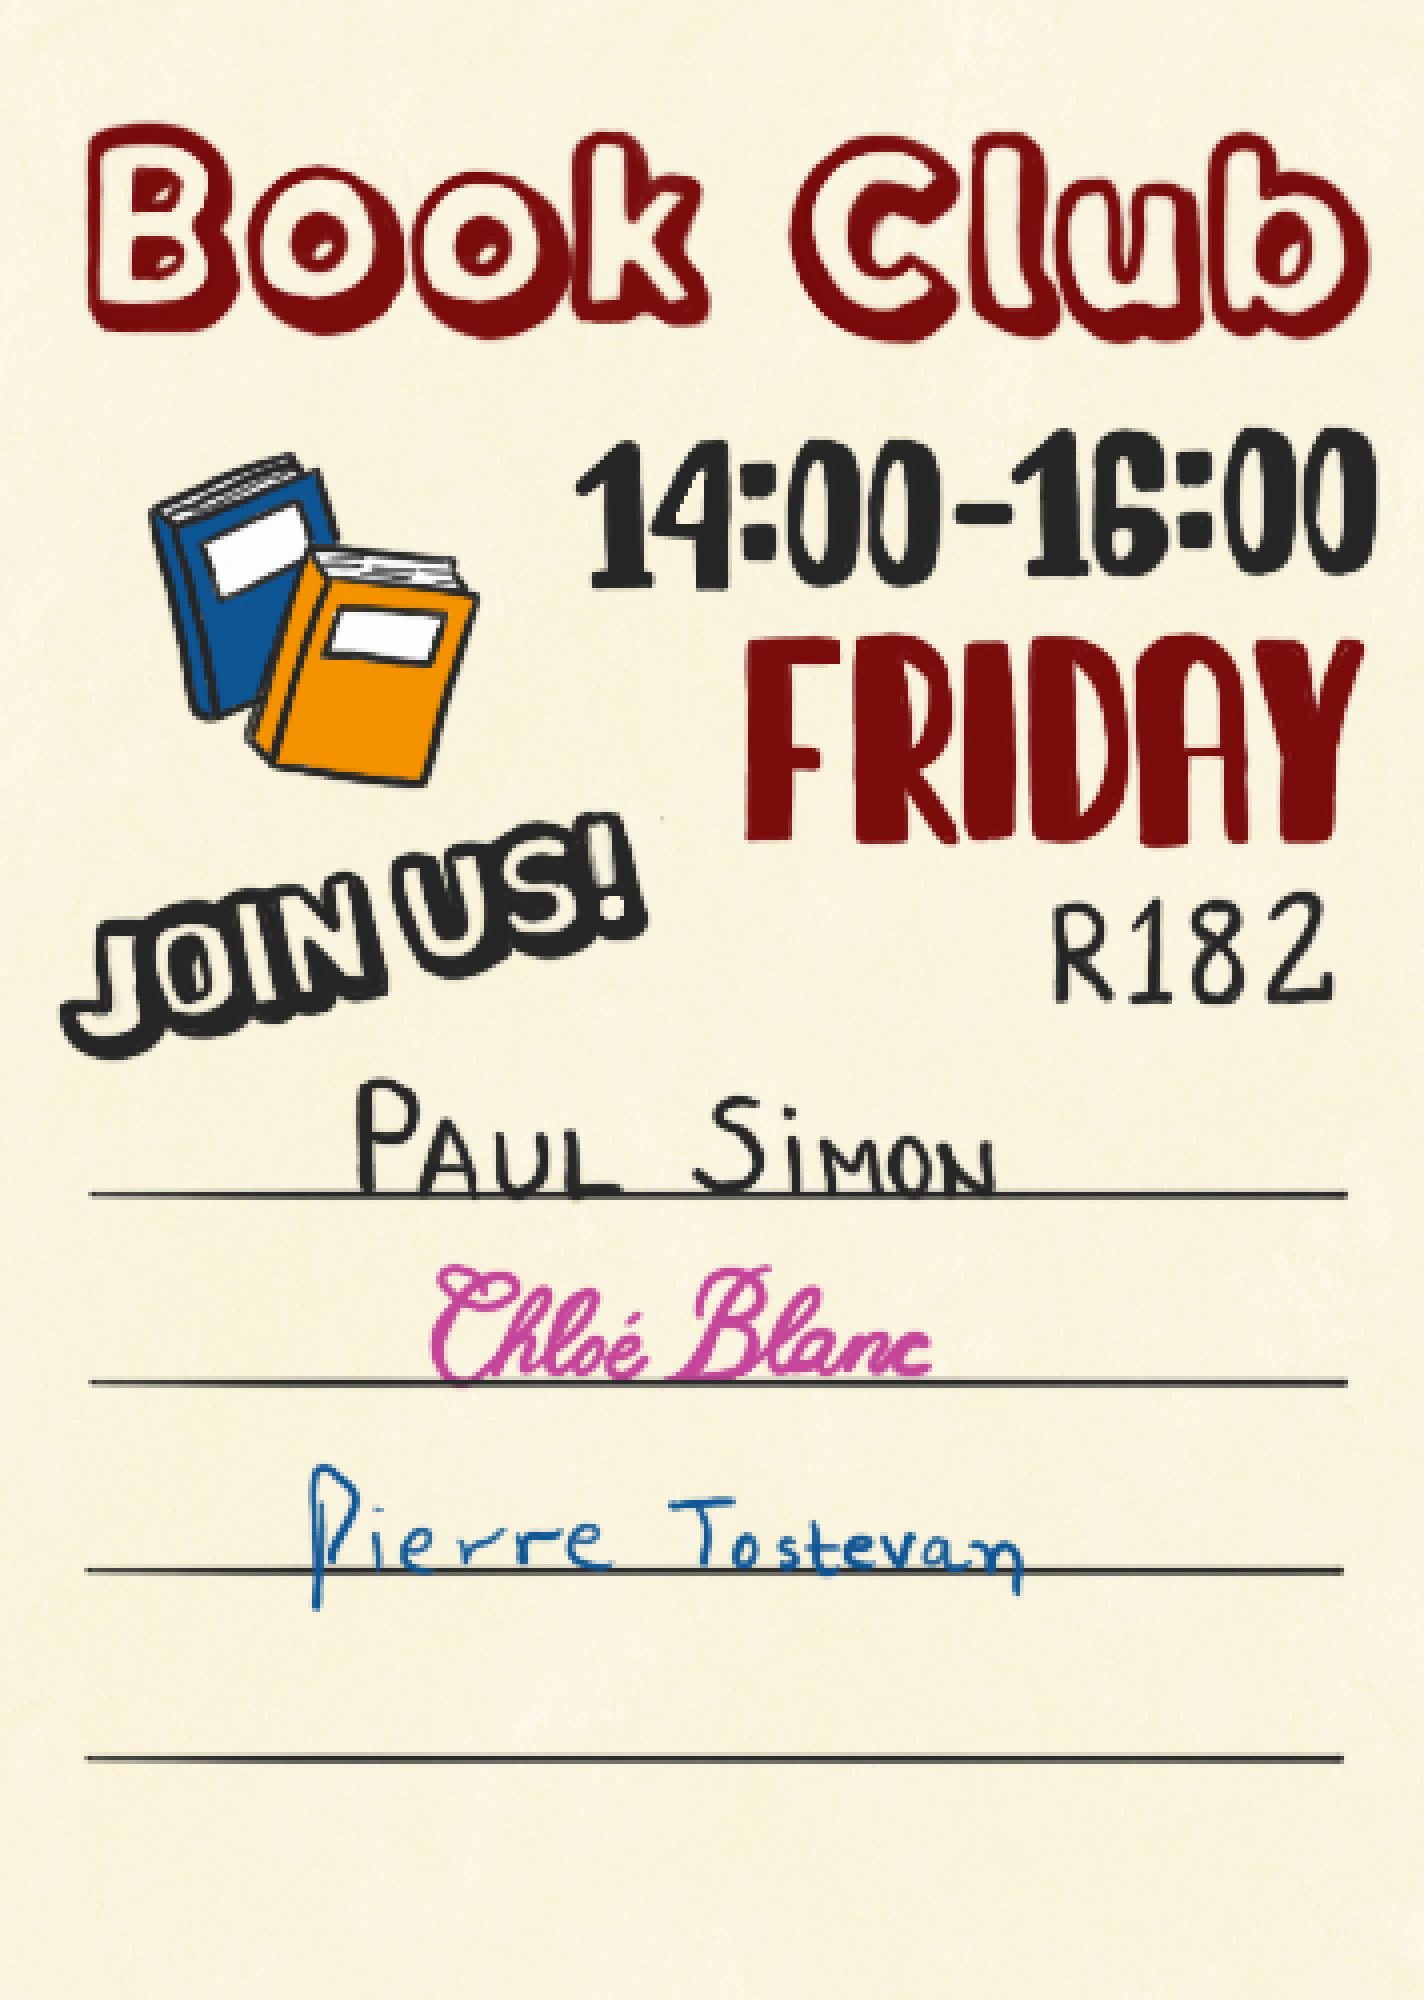 Book Club
14:00-16:00
FRIDAY
JOIN US!
R182
PAUL SiMON
Chloé Blanc
Pierre Tostevan